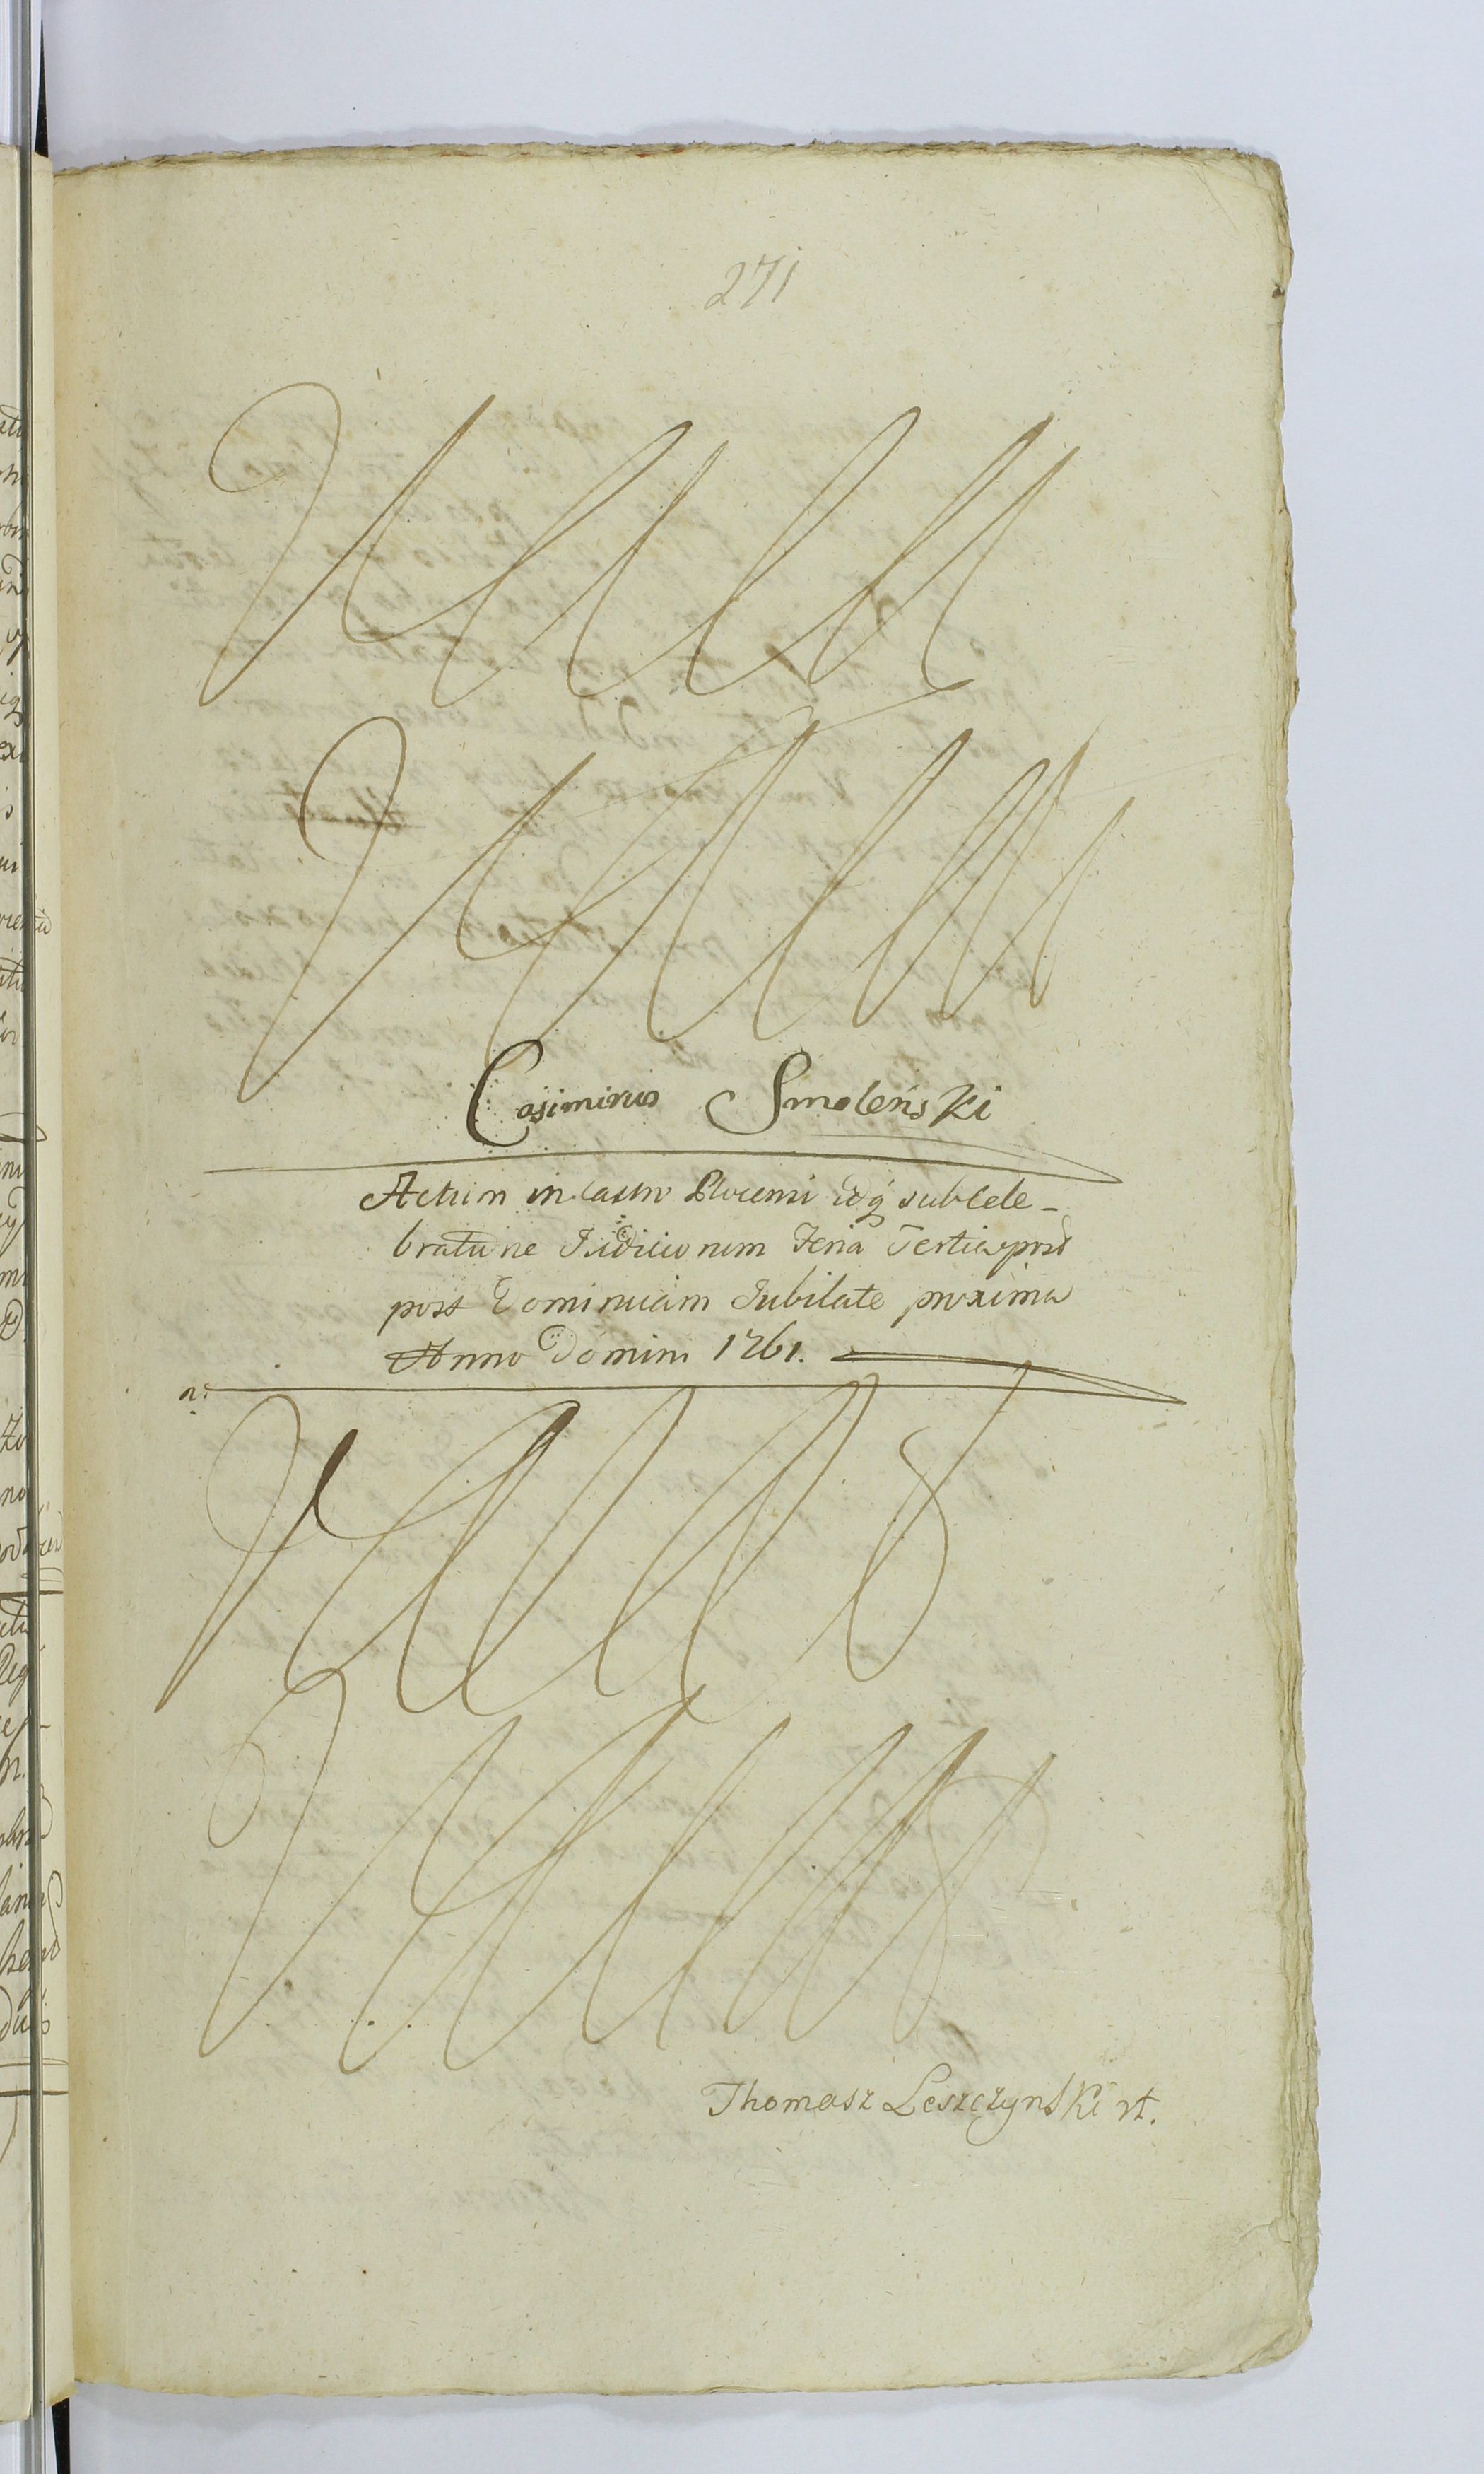 271
Casimirus Smoleński
Actum in Castro Plocensi idq sub cele-
bratione Judiciorum Feria Tertia post
post Dominicam Jubilate proxima
Anno Domini 1761.
Thomasz Leszczynski